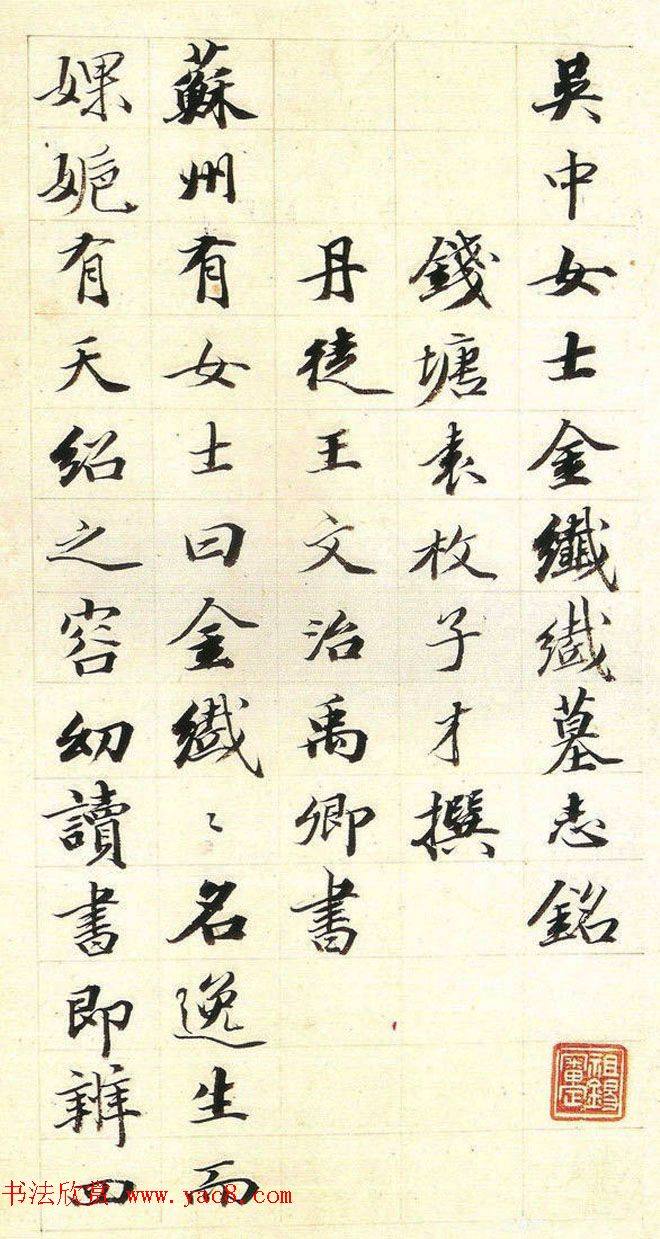 吳中女士金纖纖墓志銘
錢塘袁枚子才撰
丹徒王文治禹卿書
蘇州有女士曰金纖〻名逸生而
婐㛂有天紹之容幼讀書即辨四
书法欣赏 www.yac8.com